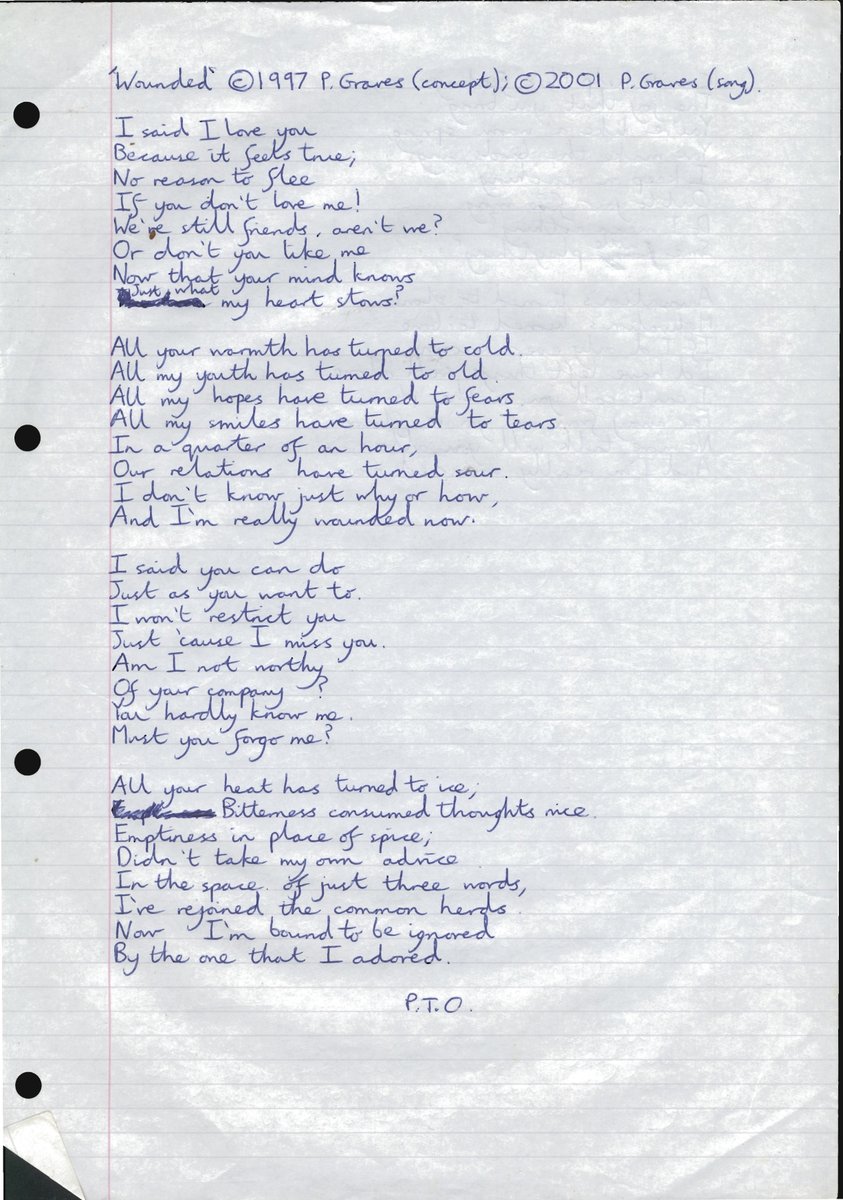 'Wounded' ©1997 P. Graves (concept); ©2001 P. Graves (song).
I said I love you
Because it feels true;
No reason to flee
If you don't love me!
We're still friends, aren't we?
Or don't you like me
Now that your mind knows
Just what my heart stows?
All your warmth has turned to cold.
All my youth has turned to old.
All my hopes have turned to fears.
All my smiles have turned to tears.
In a quarter of an hour,
Our relations have turned sour.
I don't know just why or how,
And I'm really wounded now.
I said you can do
Just as you want to.
I won't restrict you
Just 'cause I miss you.
Am I not worthy
Of your company?
You hardly know me.
Must you forgo me?
All your heat has turned to ice;
Bitterness consumed thoughts nice.
Emptiness in place of spice;
Didn't take my own advice.
In the space of just three words,
I've rejoined the common herds.
Now I'm bound to be ignored
By the one that I adored.
P.T.O.